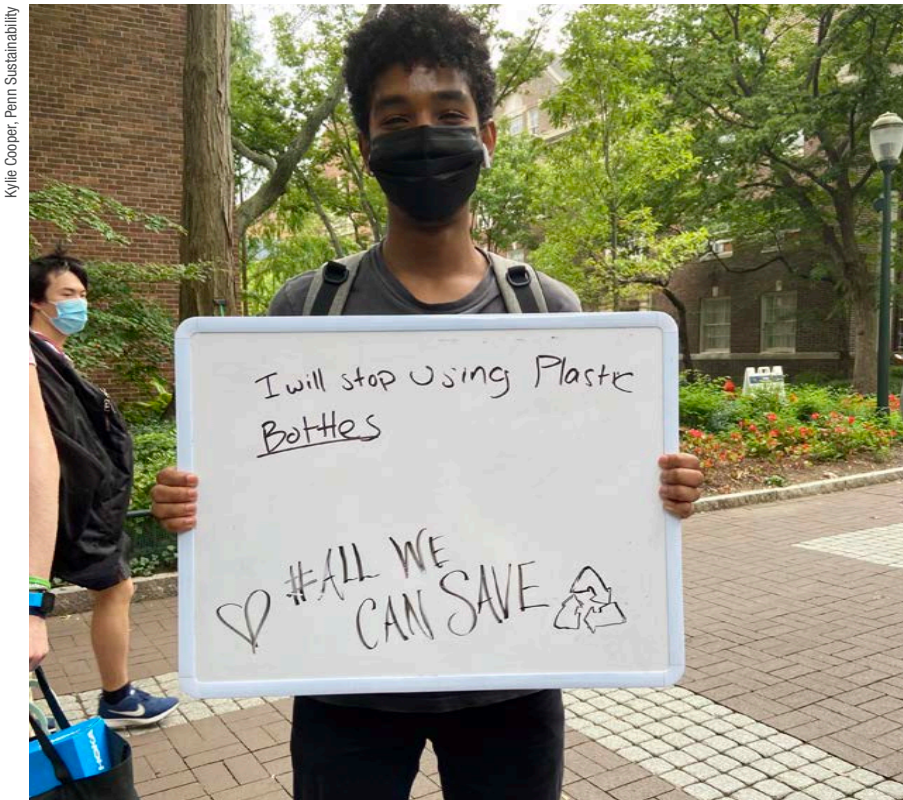 Kylie Cooper, Penn Sustainability
I will stop using Plastic
Bottles
#ALL WE
CAN SAVE
HOKA